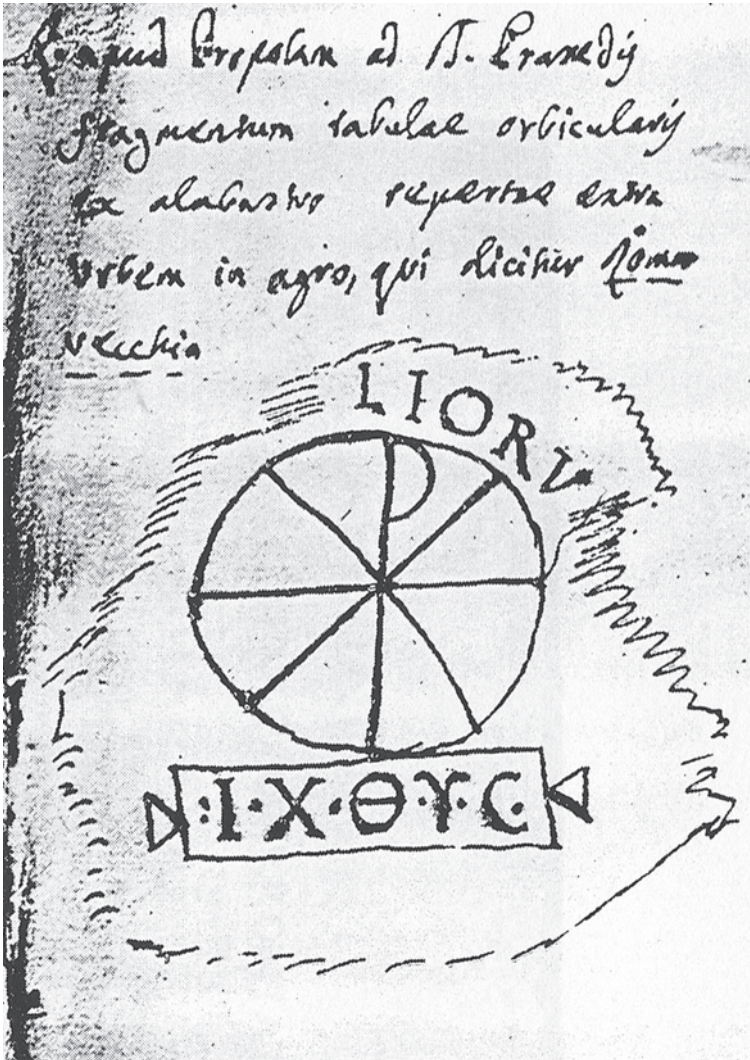 apud Propolam ad S. Praxedis
fragmentum tabulae orbicularis
ex alabastro repertae extra
Urbem in agro, qui dicitur Roma
vecchia
LIORV
P
:I·X·Θ·Υ·C·